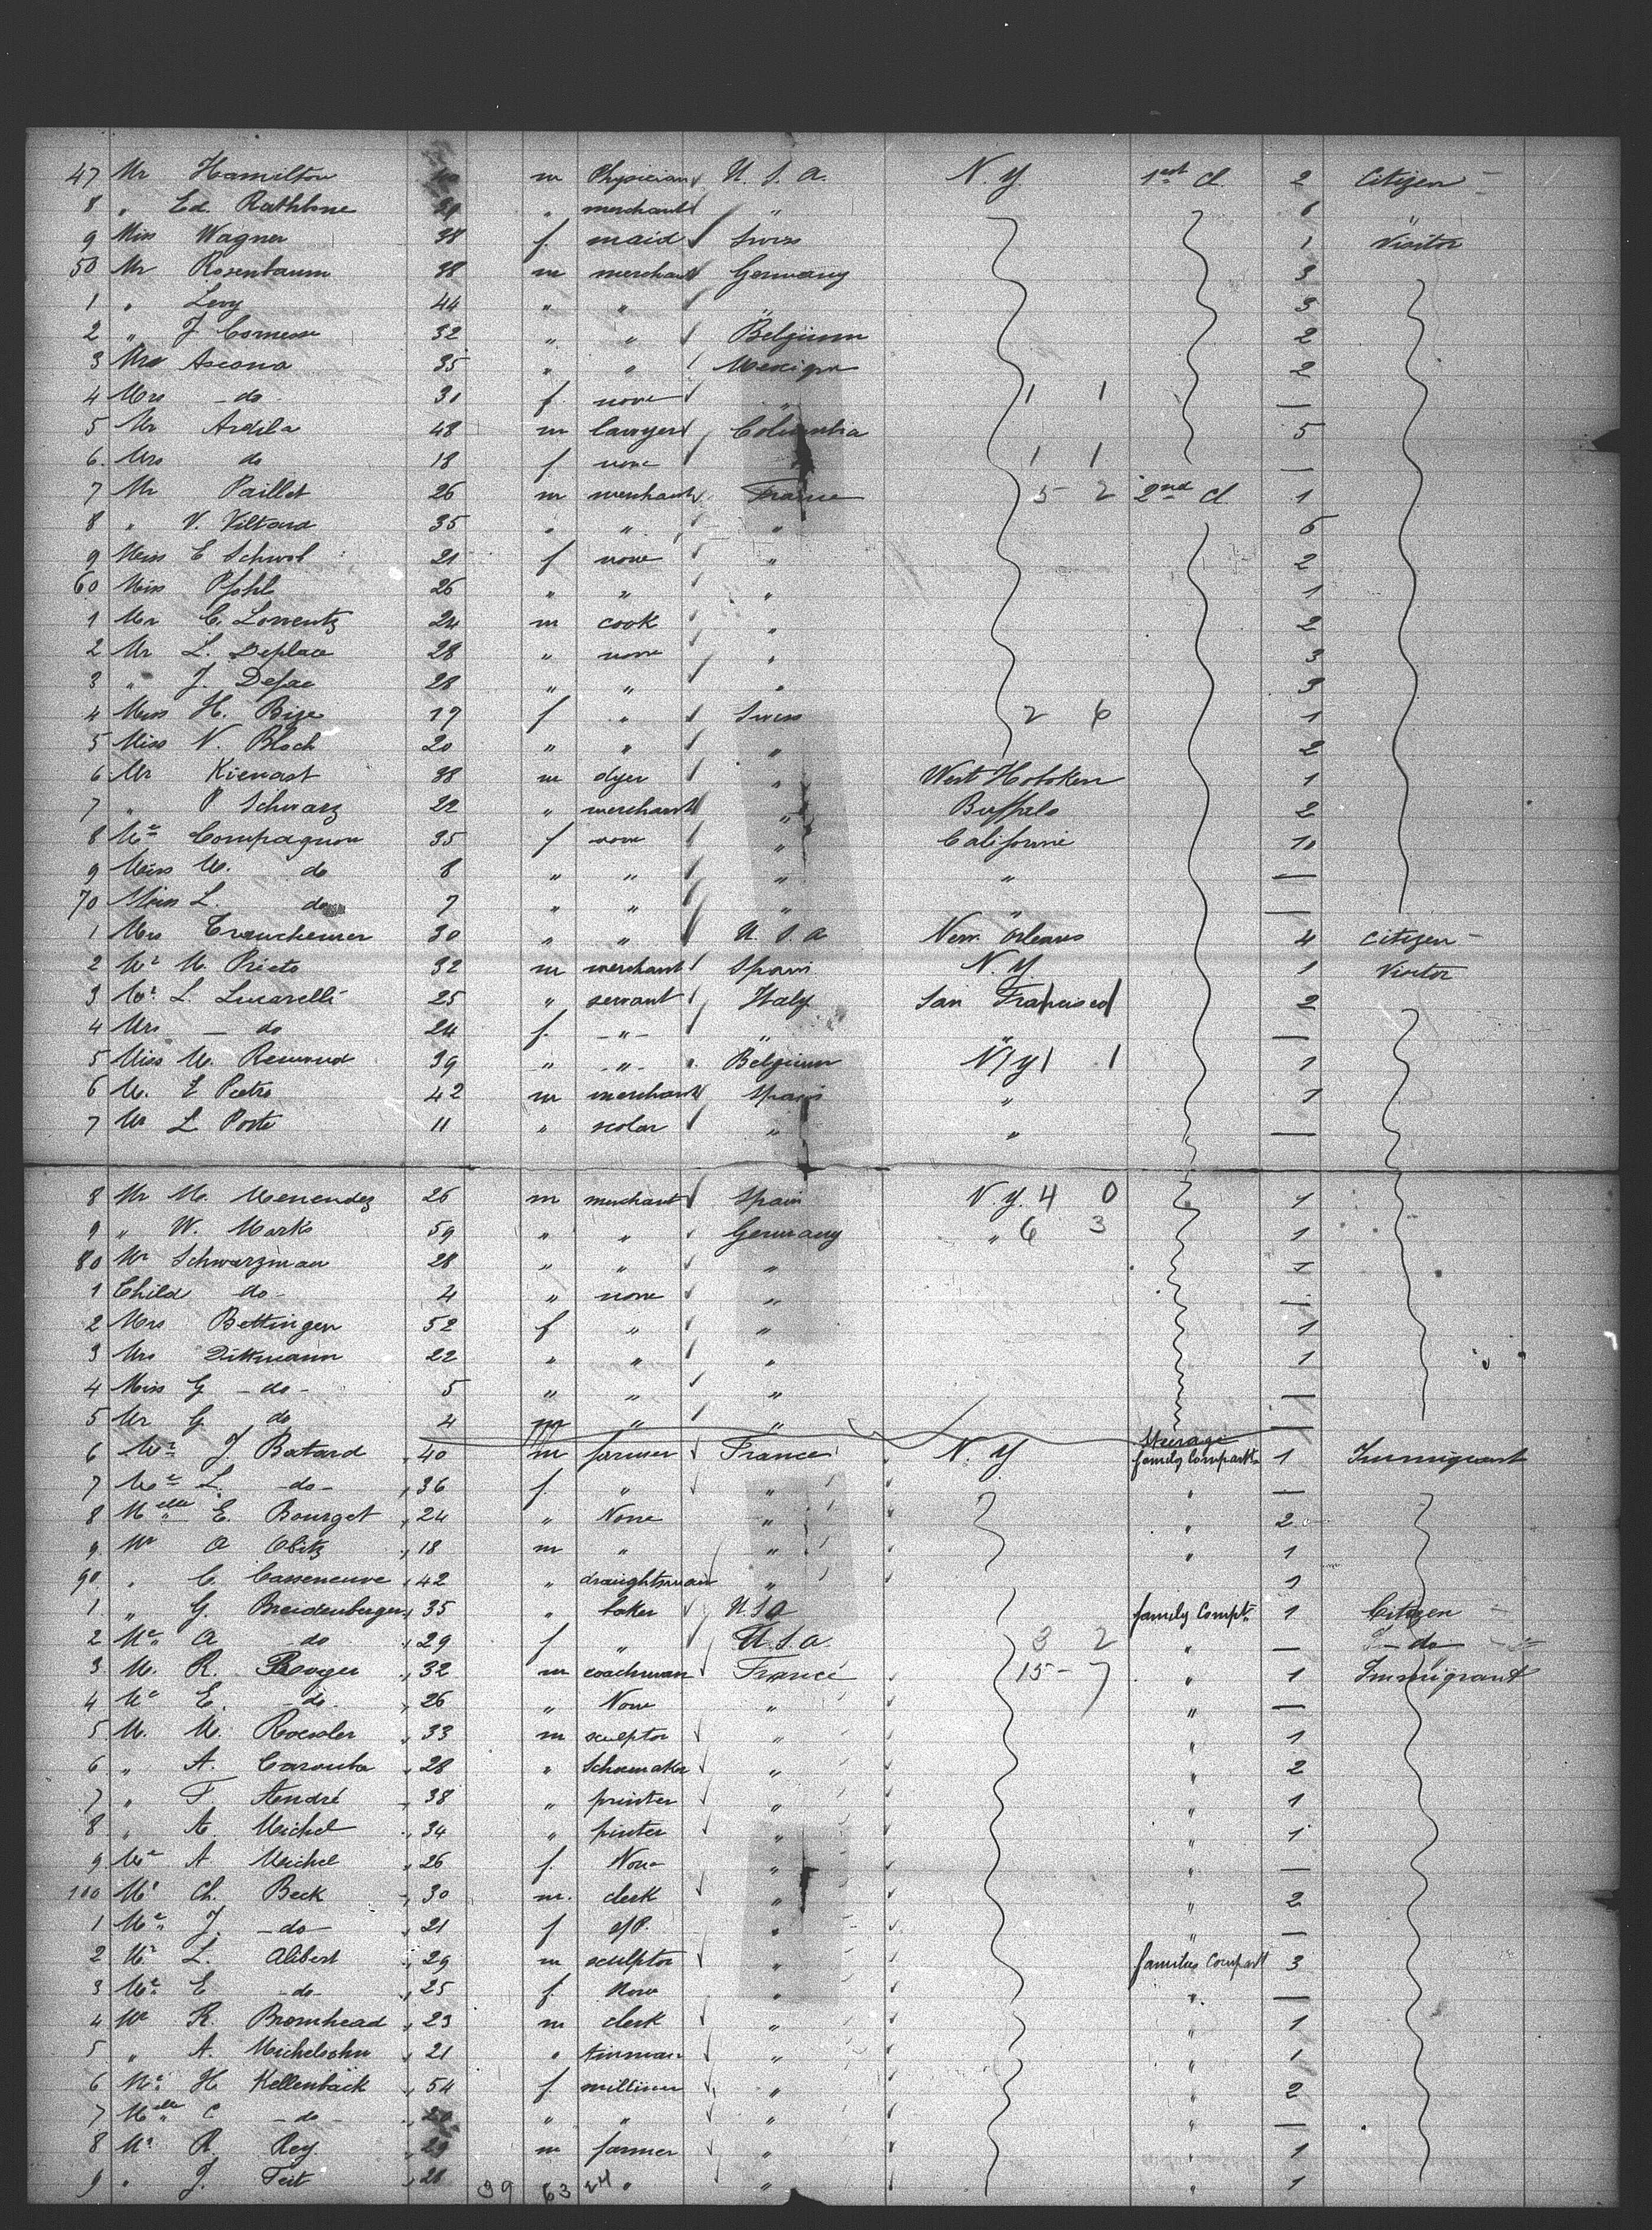 47 Mr Hamilton m Physician U. S. A. N. Y. 1st cl. 2 Citizen
8 " Ed. Rathbone " merchant " 6 "
9 Miss Wagner 38 f. maid Swiss 1 Visitor
50 Mr Rosenbaum 38 m merchant Germany 3
1 " Levy 44 " " " 3
2 " J. 32 " " Belgium 2
3 Ascona 35 " " 2
4 Mrs - do - 31 f. none " 1 1 —
5 Mr Ardila 48 m lawyer Columbia 5
6. Mrs do 18 f none 1 1 —
7 Mr Paillet 26 m merchant France 5 - 2 2nd cl 1
8 " V. Viltard 35 " " " 6
9 Miss E Schwob 21 f none " 2
60 Miss Pfohl 26 " " " 1
1 Mr C. Lorrentz 24 m cook " 2
2 Mr L. Deplace 28 " none " 3
3 " J. 28 " " " 3
4 Miss H. Bize 17 f " Swiss 2 6 1
5 Miss N. Bloch 20 " " " 2
6 Mr Kienast 38 m dyer " West Hoboken 1
7 " P. Schwarz 22 " merchant " Buffalo 2
8 Me Compagnon 35 f none " Californie 10
9 Miss M. do 8 " " " " —
70 Miss L. do 7 " " " " —
1 Mrs 30 " " U. S. A New Orleans 4 Citizen -
2 Mr M. Prieto 32 m merchant Spain N. Y. 1 Visitor
3 Mr L. Lucarelli 25 " servant Italy San Francisco 2
4 Mrs — do 24 f. - " - " " —
5 Miss M. 39 " - " - Belgium N. Y. 1 1
6 M. E 42 m merchant Spain " 1
7 Mr L Porte 11 " scolar " " —
8 Mr M. Menendez 26 m merchant Spain N. Y. 4 0 1
9 " W. Marks 59 " " Germany " 6 3 1
80 Mr Schwarzman 28 " " " 1
1 Child - do - 4 " none " —
2 Mrs Bettingen 52 f " " 1
3 Mrs Dittmann 22 " " " 1
4 Miss G - do - 5 " " " —
5 Mr G. do 4 m " " —
Sterage
6 Mr J Batard 40 m farmer France N. Y. family Compart. 1 Immigrant
7 Me L. - do - 36 f. " " " —
8 Melle E. Bourget 24 " None " " 2
9. Mr A Obitz 18 m " " " 1
90 " C. Casseneuve 42 " draughtsman " 1
1. " G. Breidenberger 35 " baker U. S. A family Compt. 1 Citizen
2 Me A do 29 f " U. S. A. 3 2 " — - do -
3. M. R. Roger 32 m coachman France 15 - 7 " 1 Immigrant
4 Me E. - do - 26 " None " " —
5. M. M. Roessler 33 m sculptor " " 1
6 " A. 28 " Schoemaker " " 2
7 " F. André 38 " printer " " 1
8 " A. Michel 34 " pinter " " 1
9 Me A. Michel 26 f. None " " —
100 Mr Ch. Beck 30 m. clerk " " 2
1 Me J. - do - 21 f " " —
2 Mr L. Alibert 29 m sculptor " families Compart 3
3 Me E - do - 25 f. None " " —
4 Mr R. Bromhead 23 m clerk " " 1
5 " A. Michelsohn 21 " tinman " " 1
6 Me H Kellenback 54 f milliner " " 2
7 Melle C - do - " " " " —
8 Mr R. Rey 29 m farmer " " 1
9 " J. Teit 28 " " " 1
39 63 24